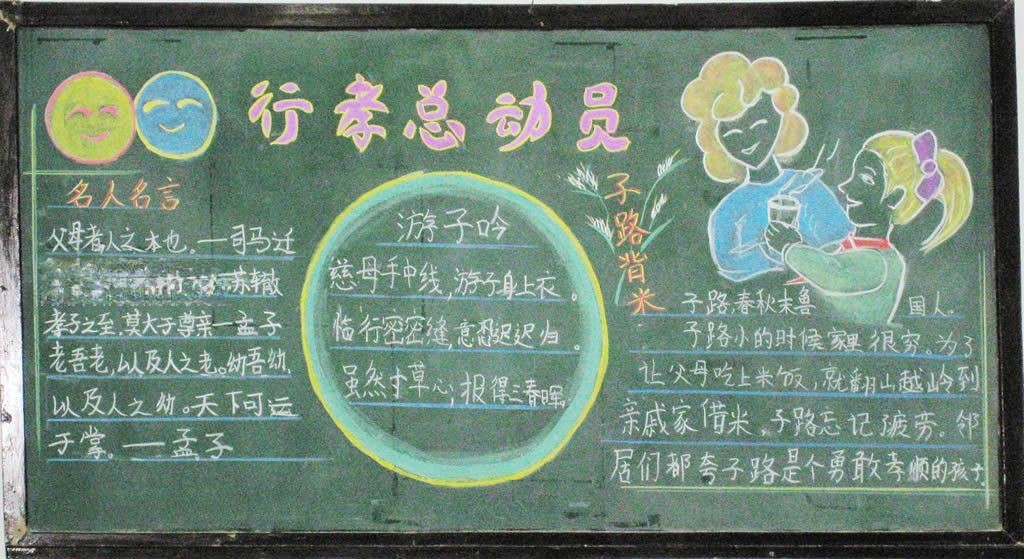 行孝总动员
名人名言
父母者人之本也。一司马迁
苏辙
孝子之至,莫大于尊亲一孟子
老吾老,以及人之老。幼吾幼,
以及人之幼。天下可运
于掌。一孟子
游子吟
慈母手中线,游子身上衣。
临行密密缝,意恐迟迟归。
虽然寸草心,报得三春晖。
子路背米
子路,春秋末鲁国人。
子路小的时候家里很穷。为了
让父母吃上米饭,就翻山越岭到
亲戚家借米,子路忘记了疲劳。邻
居们都夸子路是个勇敢孝顺的孩子